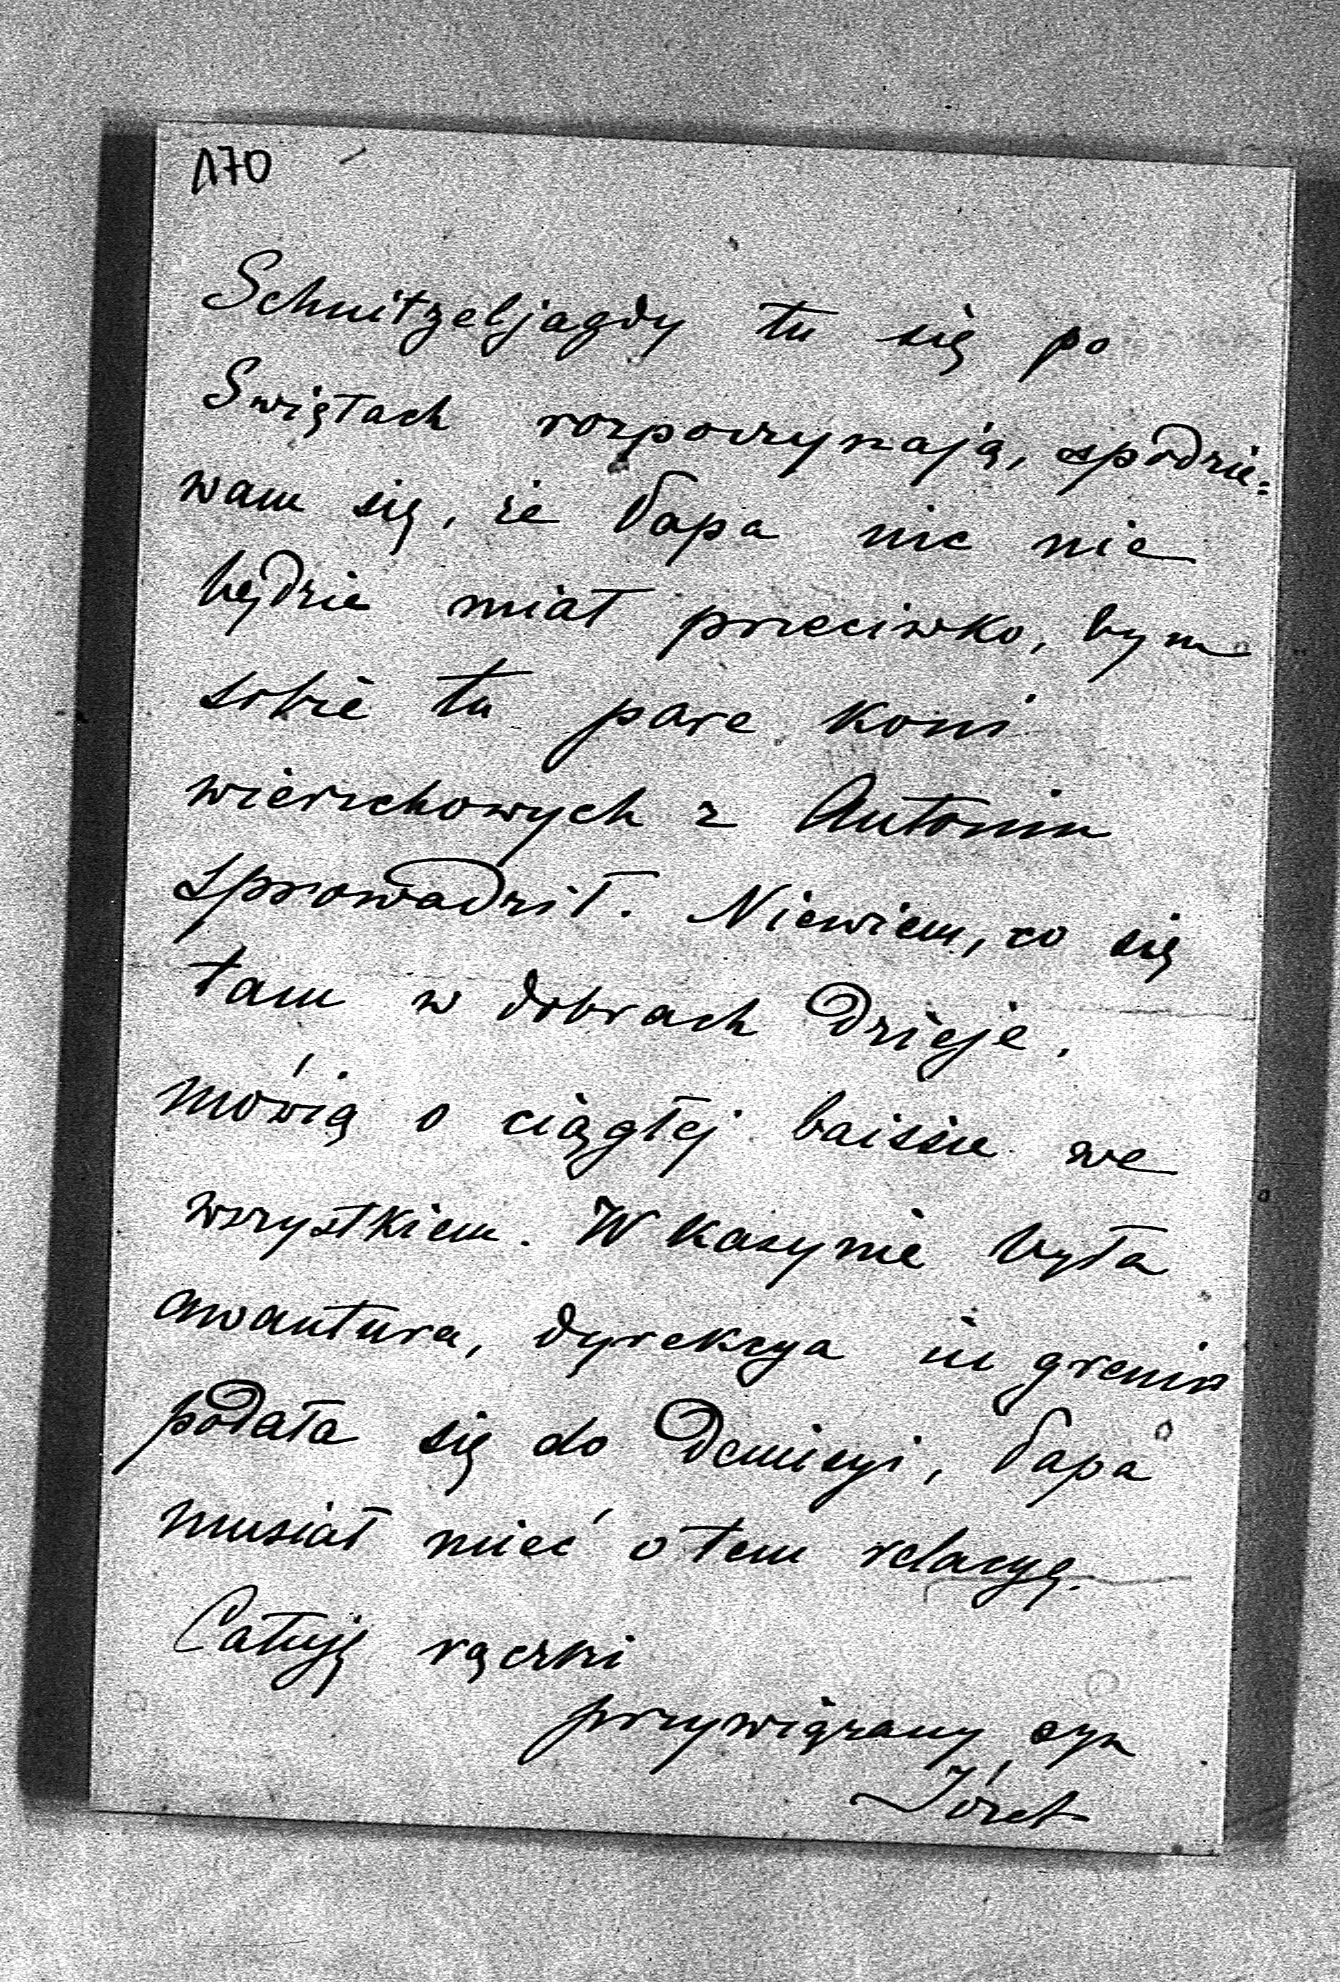 170
Schnitzeljagdy tu się po
Swiętach rozpoczynają, spodzie=
wam się, że Papa nic nie
będzie miał przeciwko, bym
sobie tu parę koni
wierzchowych z Antonin
sprowadził. Niewiem, co się
tam w dobrach dzieje.
mówią o ciągłej baissie we
wszystkiem. W Kasynie była
awantura, dyrekcya in gremio
podała się do Demisyi, Papa
musiał mieć o tem relacyę.
Całuję rączki
przywiązany syn
Józef